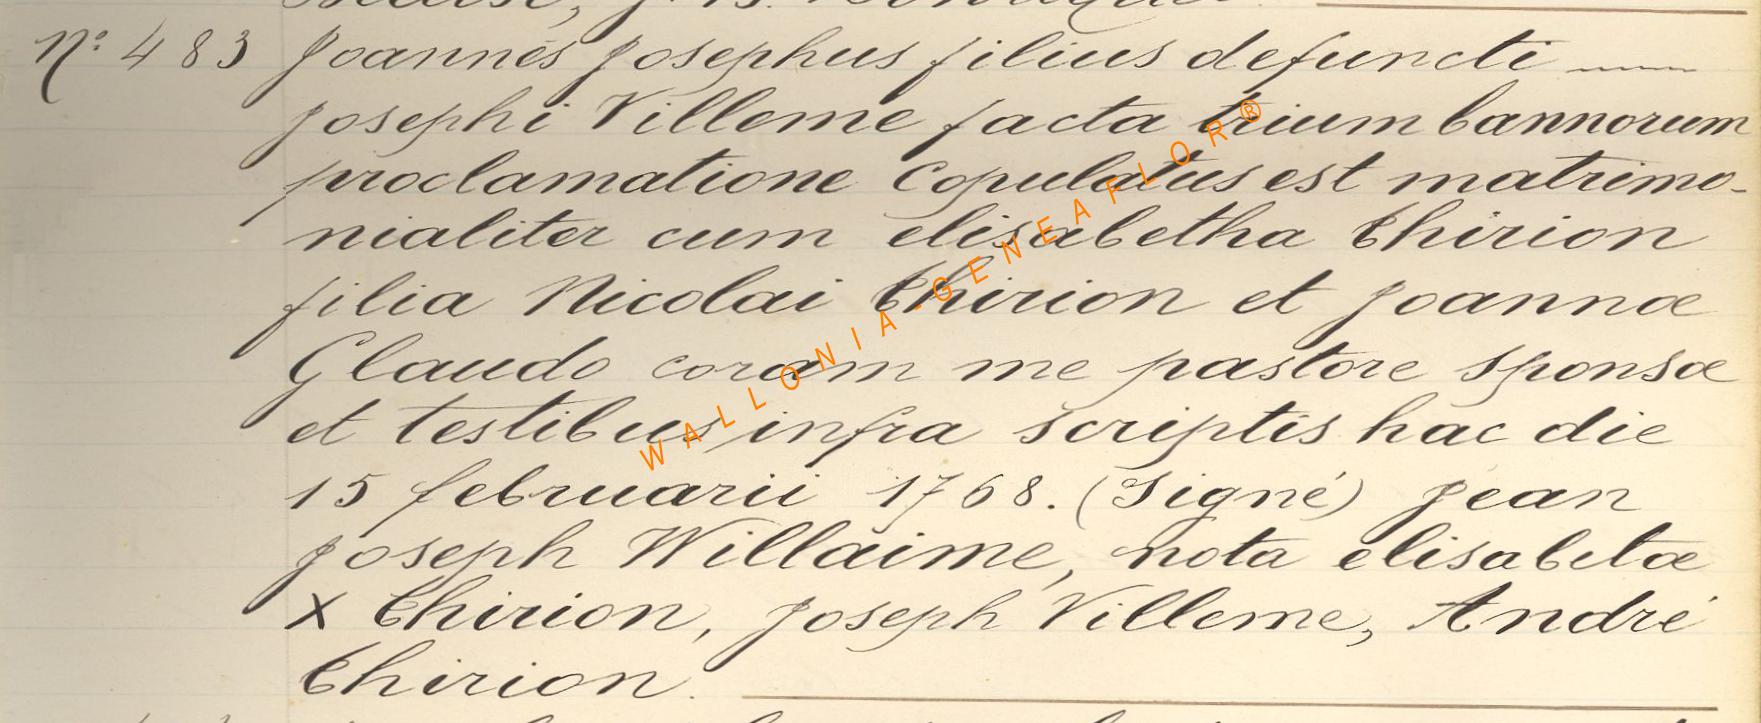 N° 483 Joannes Josephus filius defuncti
Josephi Villeme facta trium bannorum
proclamatione Copulatus est matrimo-
nialiter cum elisabetha Thirion
filia Nicolai Thirion et Joannæ
Glaudo coram me pastore sponsæ
et testibus infra scriptis hac die
15 februarii 1768. (Signé) Jean
Joseph Willaime, nota elisabetæ
X Thirion, Joseph Villeme, André
Thirion.
WALLONIA-GENEAFLOR®